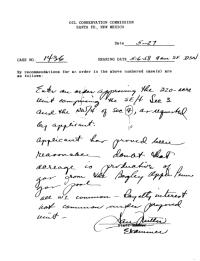 OIL CONSERVATION COMMISSION
SANTA FE, NEW MEXICO
Date 5-27
CASE NO. 1436 HEARING DATE 5-6-58 9am SF DSN
My recommendations for an order in the above numbered case(s) are
as follows:
Enter an order approving the 320-acre
unit comprising the SE/4 Sec 3
and the NE/4 of Sec , as requested
by applicant.
Applicant has proved been
reasonable doubt that
acreage is productive of
gas from the Bagley Penn
Gas pool
are common. Royalty interest
not common under proposed
unit -
Examiner